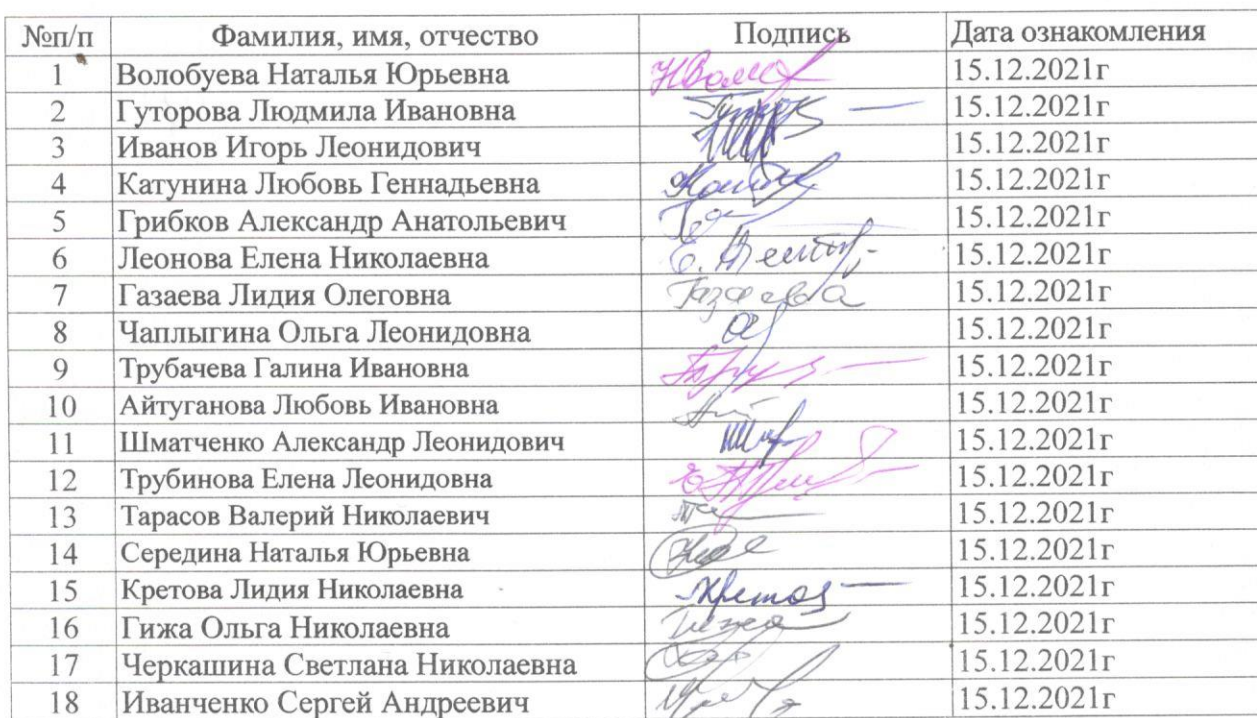 №п/п Фамилия, имя, отчество Подпись Дата ознакомления
1 Волобуева Наталья Юрьевна 15.12.2021г
2 Гуторова Людмила Ивановна 15.12.2021г
3 Иванов Игорь Леонидович 15.12.2021г
4 Катунина Любовь Геннадьевна 15.12.2021г
5 Грибков Александр Анатольевич 15.12.2021г
6 Леонова Елена Николаевна 15.12.2021г
7 Газаева Лидия Олеговна Газаева 15.12.2021г
8 Чаплыгина Ольга Леонидовна 15.12.2021г
9 Трубачева Галина Ивановна 15.12.2021г
10 Айтуганова Любовь Ивановна 15.12.2021г
11 Шматченко Александр Леонидович 15.12.2021г
12 Трубинова Елена Леонидовна 15.12.2021г
13 Тарасов Валерий Николаевич 15.12.2021г
14 Середина Наталья Юрьевна 15.12.2021г
15 Кретова Лидия Николаевна 15.12.2021г
16 Гижа Ольга Николаевна 15.12.2021г
17 Черкашина Светлана Николаевна 15.12.2021г
18 Иванченко Сергей Андреевич 15.12.2021г